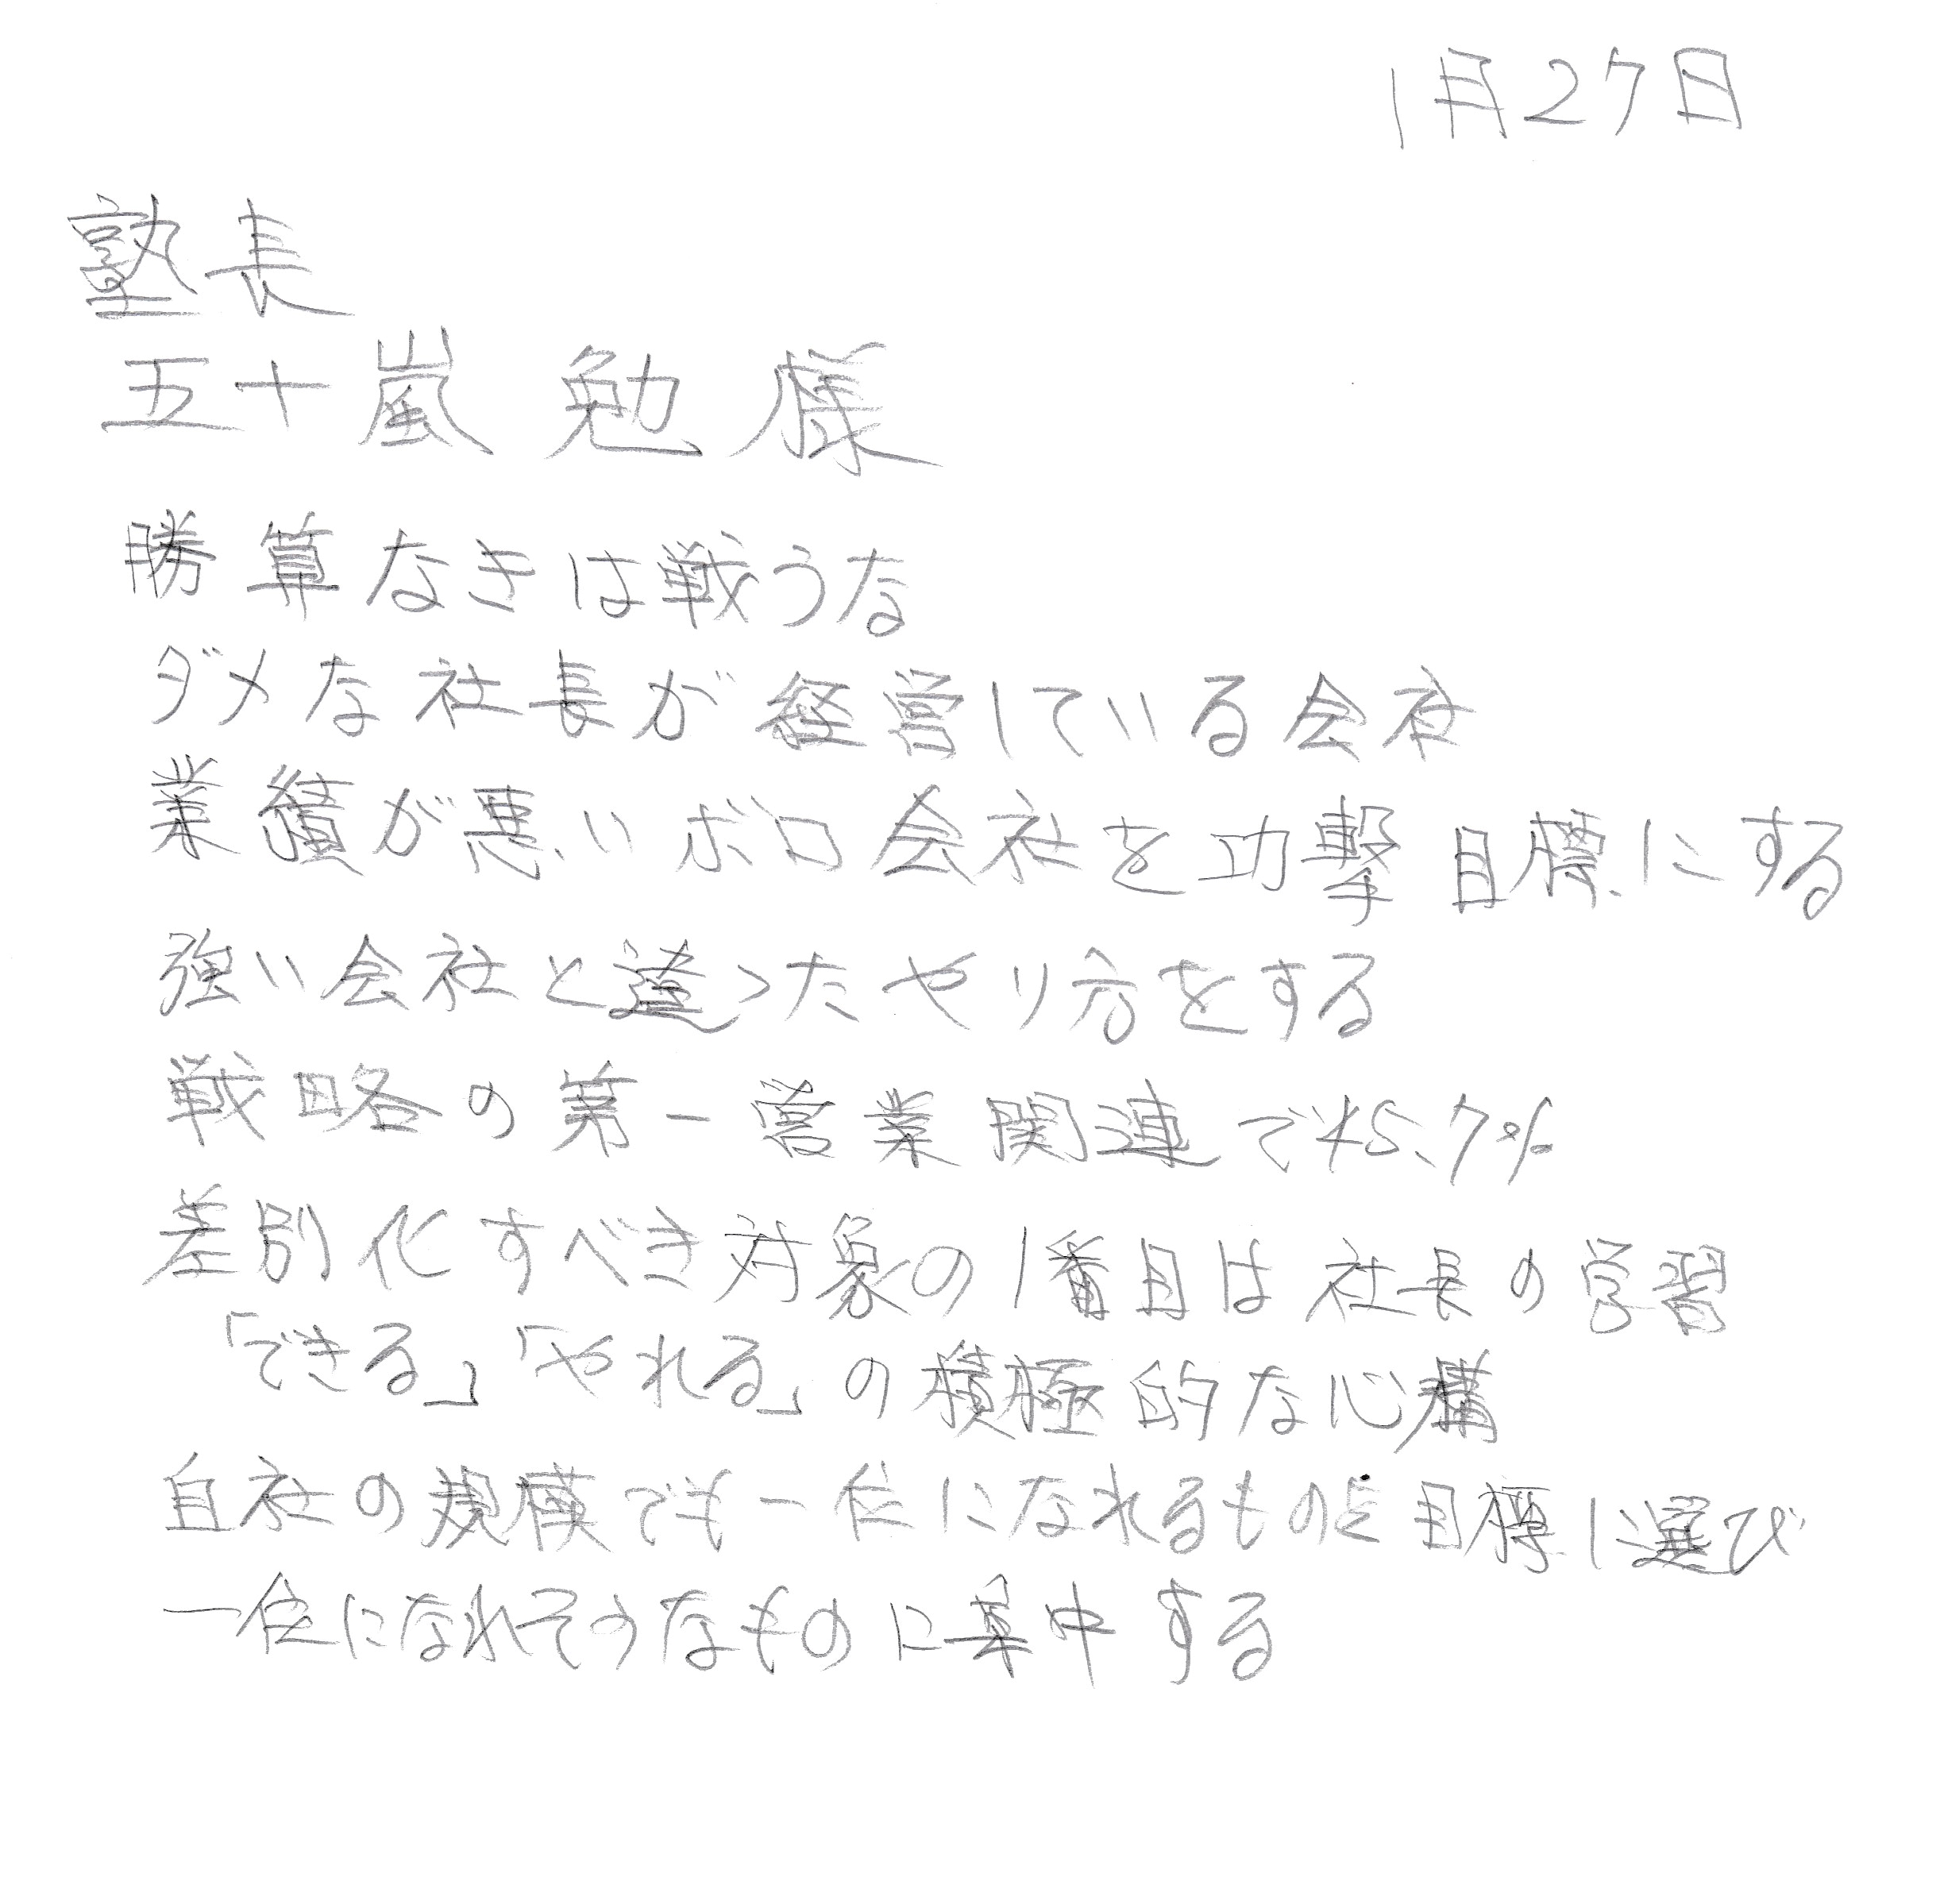 1月27日
塾長
五十嵐 勉 様
勝算なきは戦うな
ダメな社長が経営している会社
業績が悪いボロ会社を功撃目標にする
強い会社と違ったやり方をする
戦略の第一営業関連で45.7%
差別化すべき対象の1番目は社長の学習
「できる」「やれる」の積極的な心構
自社の規模でも一位になれるものを目標に選び
一位になれそうなものに集中する